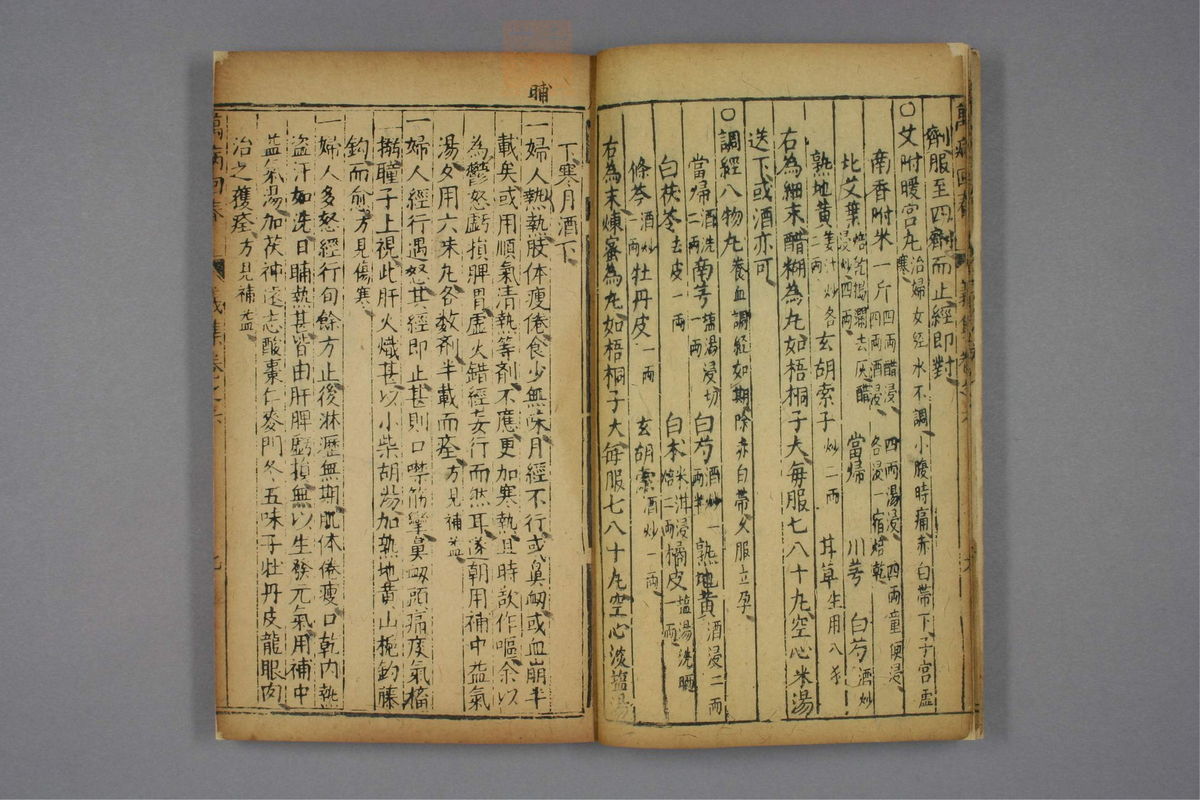 劑服至四劑而止經即對
○艾附暖宮丸 治婦女經水不調小腹時痛赤白帶下子宮虛寒
南香附米一斤 四兩醋浸 四兩湯浸 四兩童便浸 四兩酒浸 各浸一宿焙乾
北艾葉 焙乾搗爛去灰醋浸炒四兩 當歸 川芎 白芍 酒炒
熟地黃 姜汁炒各二兩 玄胡索子 炒二兩 甘草 生用八錢
右為細末醋糊為丸如梧桐子大每服七八十丸空心米湯
送下或酒亦可
○調經八物丸 養血調經如期除赤白帶久服立孕
當歸 酒洗二兩 南芎 塩湯浸切一兩 白芍 酒炒一兩半 熟地黃 酒浸二兩
白茯苓 去皮一兩 白朮 米泔浸焙二兩 橘皮 塩湯洗晒一兩
條芩 酒炒一兩 牡丹皮 一兩 玄胡索 酒炒一兩
右為末煉蜜為丸如梧桐子大每服七八十丸空心淡塩湯
晡
下寒月酒下
一婦人熱熱肢体瘦倦食少無味月經不行或鼻衂或血崩半
載矣或用順氣清熱等劑不應更加寒熱且時欬作嘔余以
為鬱怒虧損脾胃虛火錯經妄行而然耳遂朝用補中益氣
湯夕用六味丸各数剤半載而痊 方見補益
一婦人經行遇怒其經即止甚則口噤筋攣鼻衂頭痛痰氣搐
搦瞳子上視此肝火熾甚以小柴胡湯加熟地黃山梔鈎藤
鈎而愈 方見傷寒
一婦人多怒經行旬餘方止後淋瀝無期肌体倦瘦口乾內熱
盜汗如洗日晡熱甚皆由肝脾虧損無以生發元氣用補中
益氣湯加茯神遠志酸棗仁麥門冬五味子牡丹皮龍眼肉
治之獲痊 方見補益
萬病回春